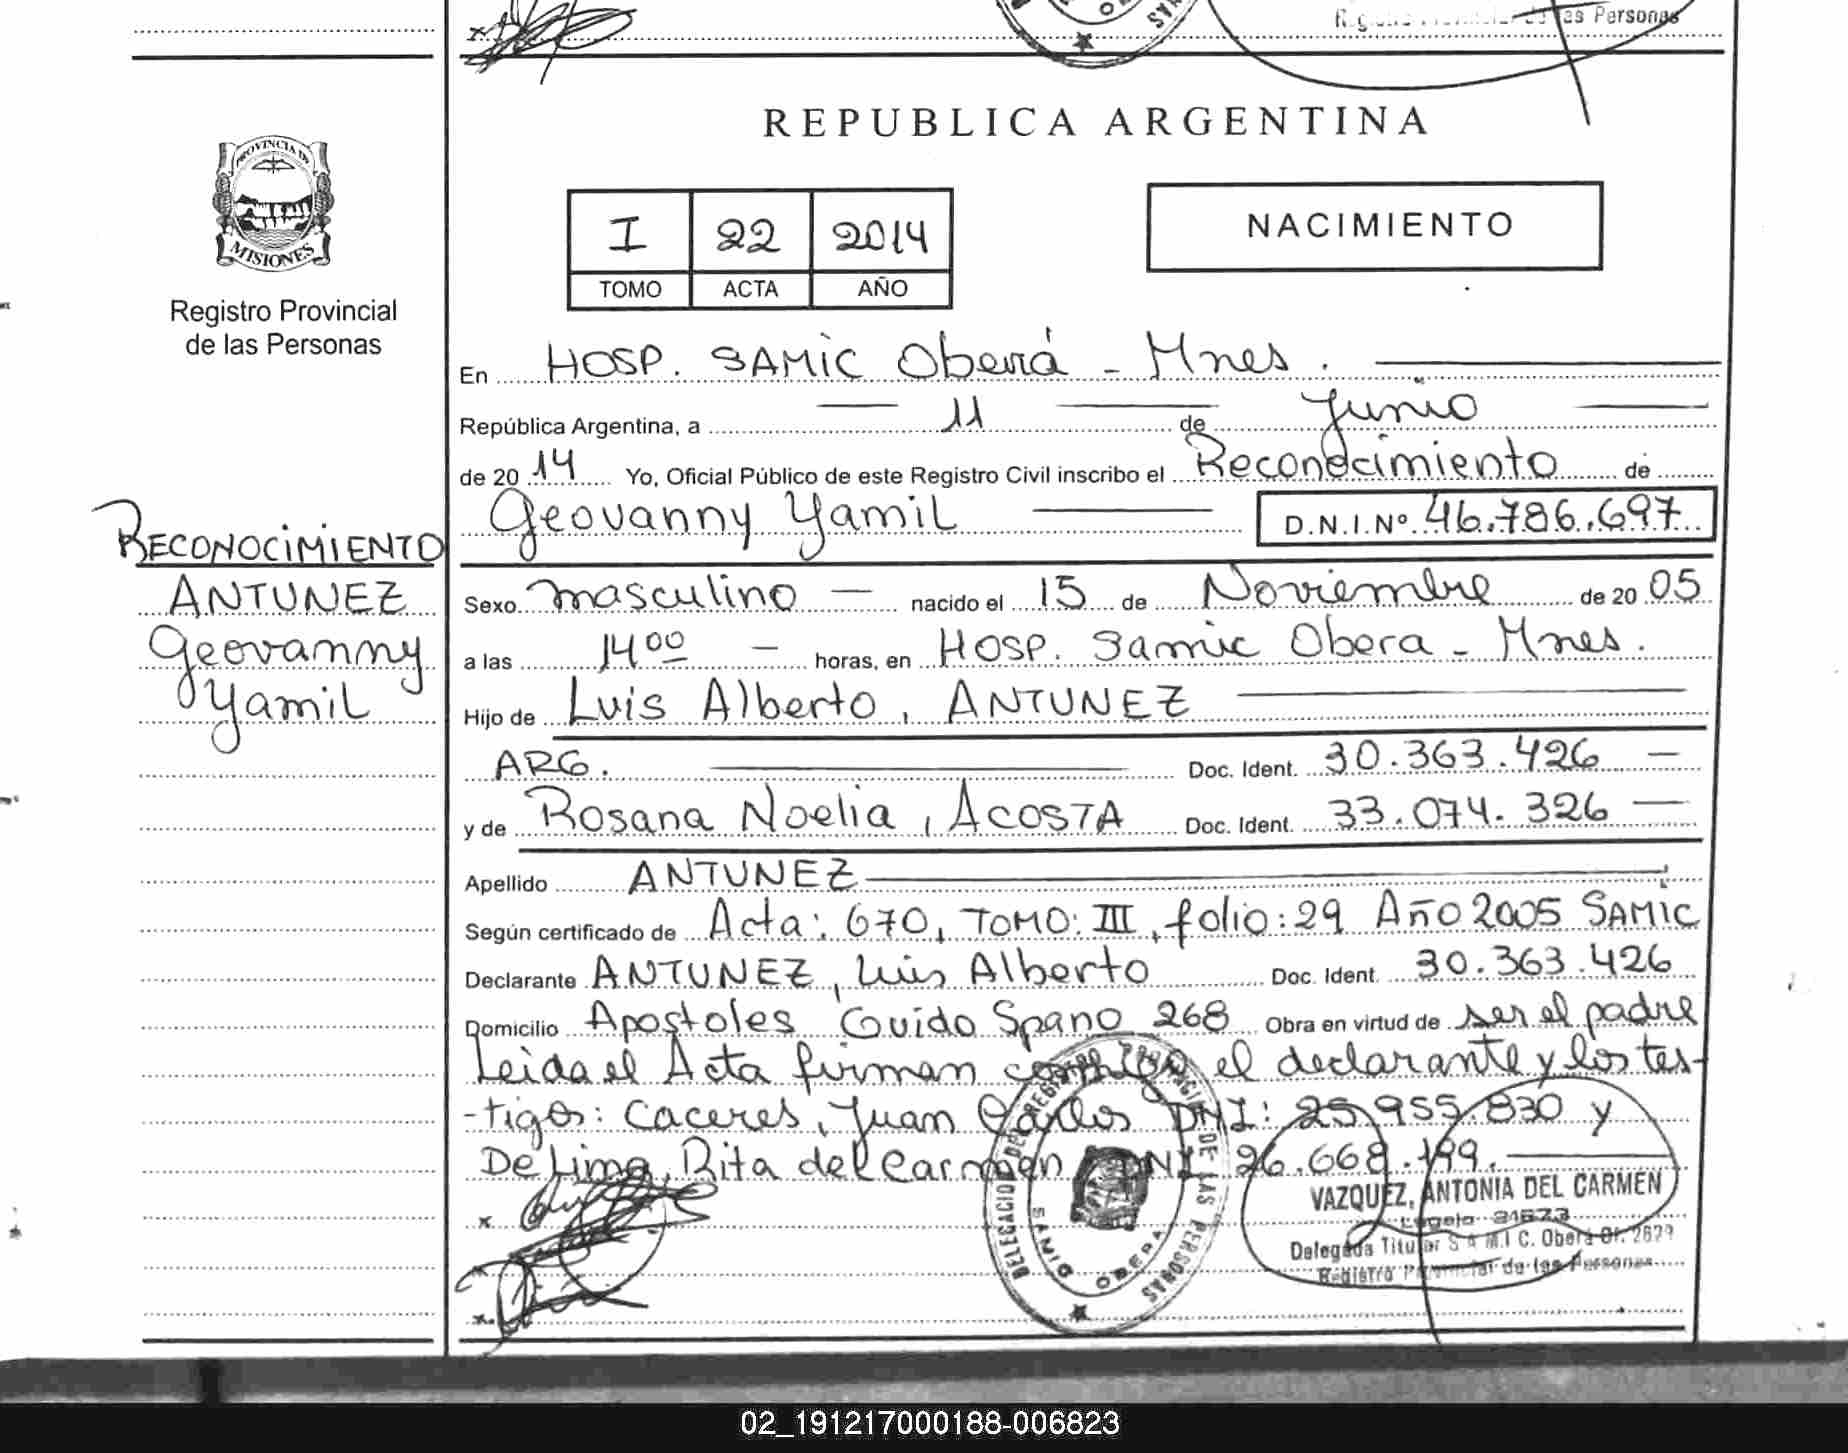 as Personas
REPUBLICA ARGENTINA
PROVINCIA DE
MISIONES
Registro Provincial
de las Personas
I 22 2014
TOMO ACTA AÑO
NACIMIENTO
En HOSP. SAMIC Oberá - Mnes.
República Argentina, a 11 de Junio
de 20 14 Yo, Oficial Público de este Registro Civil inscribo el Reconocimiento de
Geovanny Yamil D.N.I.Nº 46.786.697
RECONOCIMIENTO
ANTUNEZ
Geovanny
Yamil
Sexo masculino — nacido el 15 de Noviembre de 20 05
a las 14 00 — horas, en Hosp. Samic Obera - Mnes.
Hijo de Luis Alberto, ANTUNEZ
ARG. Doc. Ident. 30.363.426 —
y de Rosana Noelia, ACOSTA Doc. Ident. 33.074.326 —
Apellido ANTUNEZ
Según certificado de Acta: 670, TOMO: III, folio: 29 Año 2005 SAMIC
Declarante ANTUNEZ, Luis Alberto Doc. Ident. 30.363.426
Domicilio Apostoles Guido Spano 268 Obra en virtud de ser el padre
Leida el Acta firman conmigo el declarante y los tes-
-tigos: Caceres, Juan Carlos DNI: 25.955.830 y
De Lima, Rita del Carmen DNI 26.668.199.
DELEGACION DEL REGISTRO PROVINCIAL DE LAS PERSONAS
SAMIC OBERA
VAZQUEZ, ANTONIA DEL CARMEN
Legajo 31673
Delegada Titular S A M I C. Oberá Of. 2677
Registro Provincial de las Personas
02_191217000188-006823